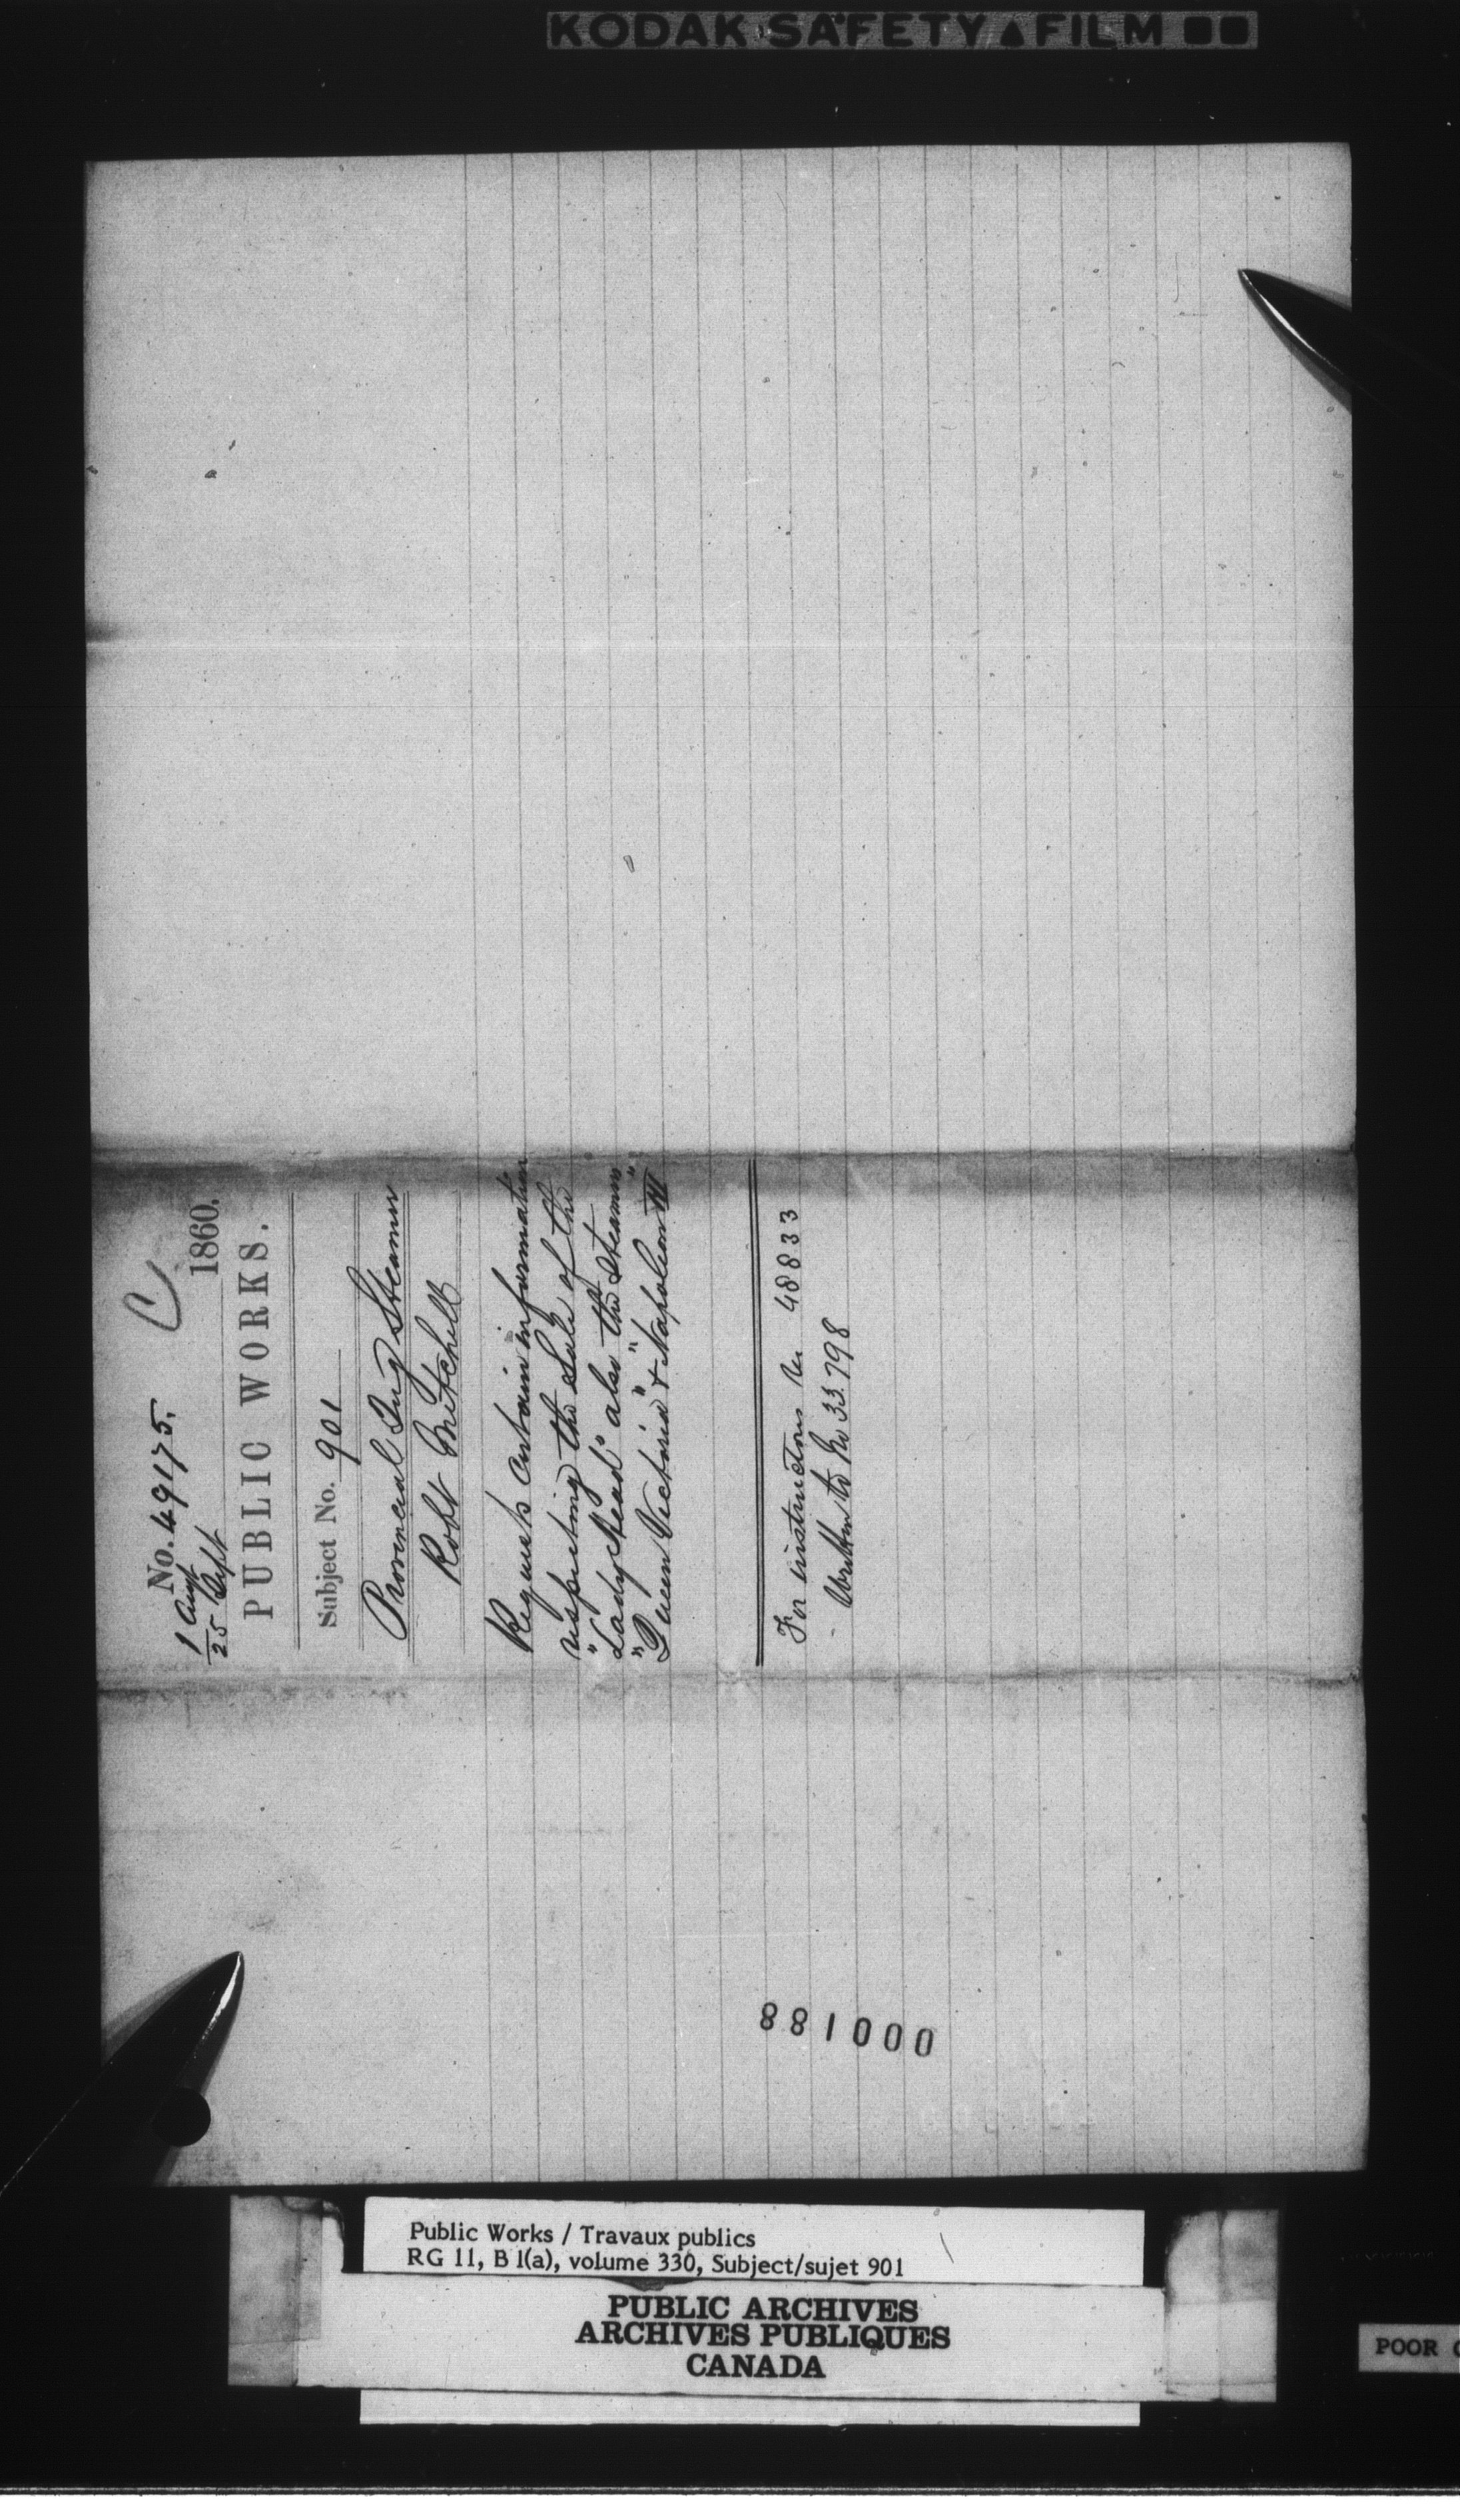 KODAK SAFETY FILM
No. 49175. C
1 Augt
25 Sept 1860.
PUBLIC WORKS.
Subject No. 901
Provincial Tug Steamer
Robt Mitchell
Requests certain information
respecting the Sale of the
"Lady Head" also the Steamers
"Queen Victoria" & "Napoleon III"
For instructions see 48833
- Written to No 33798
000188
Public Works / Travaux publics
RG 11, B 1(a), volume 330, Subject/sujet 901
PUBLIC ARCHIVES
ARCHIVES PUBLIQUES
CANADA
POOR